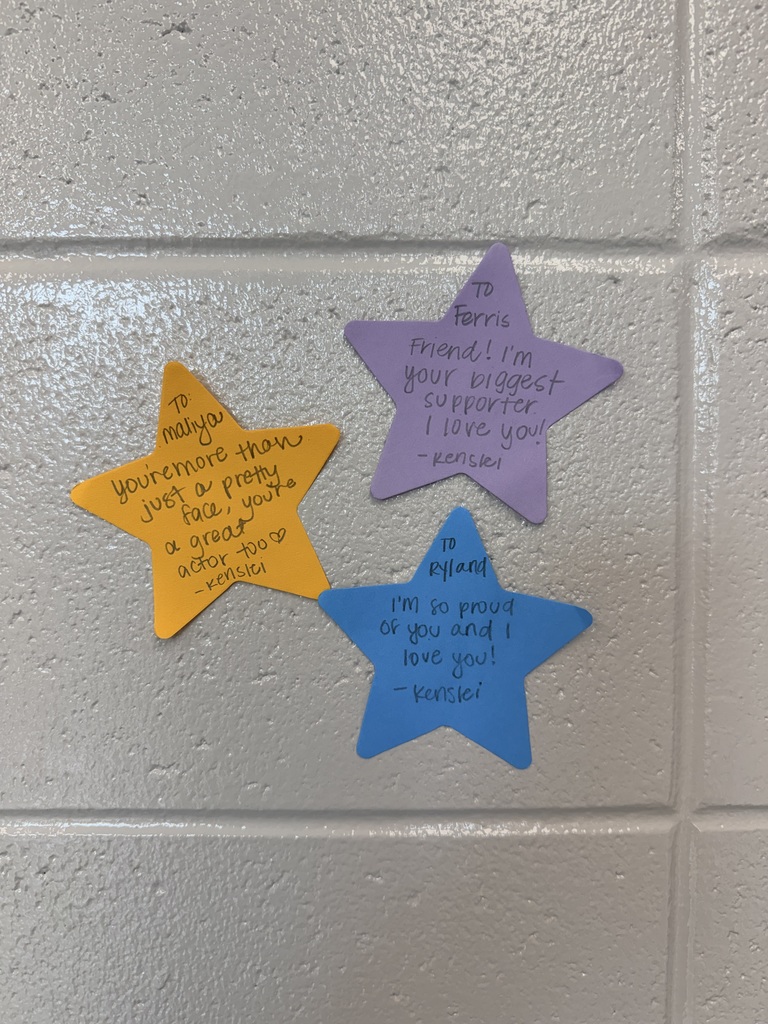 TO:
maliya
you're more than
just a pretty
face, you're
a great
actor too♡
-Kenslei
TO
Ferris
Friend! I'm
your biggest
supporter
I love you!
-Kenslei
TO
Ryland
I'm so proud
of you and I
love you!
-Kenslei